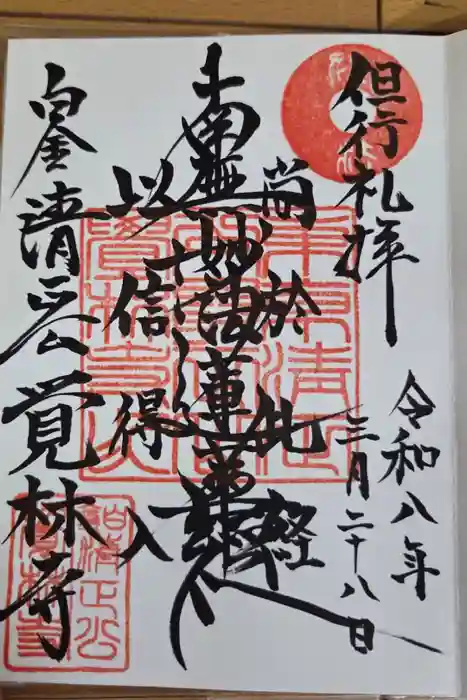 但行礼拝
令和八年
三月二十八日
尚於此経
南無妙法蓮華経
以信得入
白金清正公覚林寺